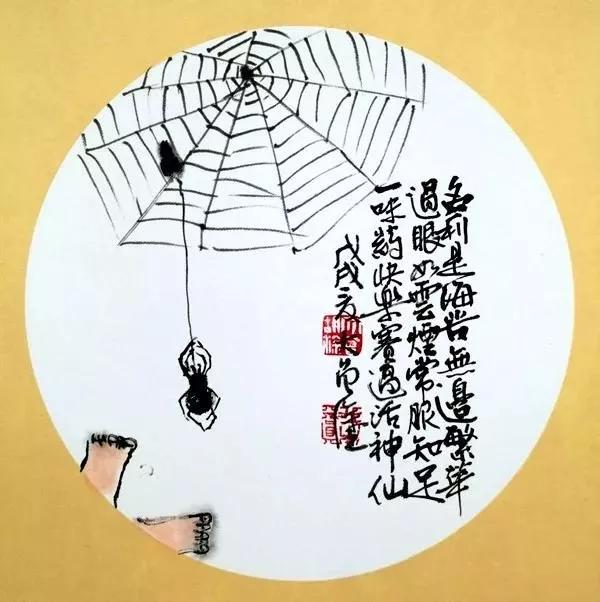 名利是海苦無邊繁華
過眼如雲煙常服知足
一味葯快樂賽過活神仙
戊戌夏